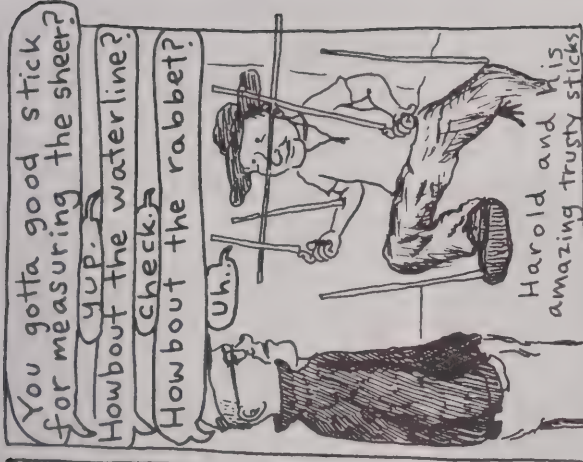 You gotta good stick
for measuring the sheer?
yup.
Howbout the waterline?
check.
Howbout the rabbet?
Uh..
Harold and his
amazing trusty sticks